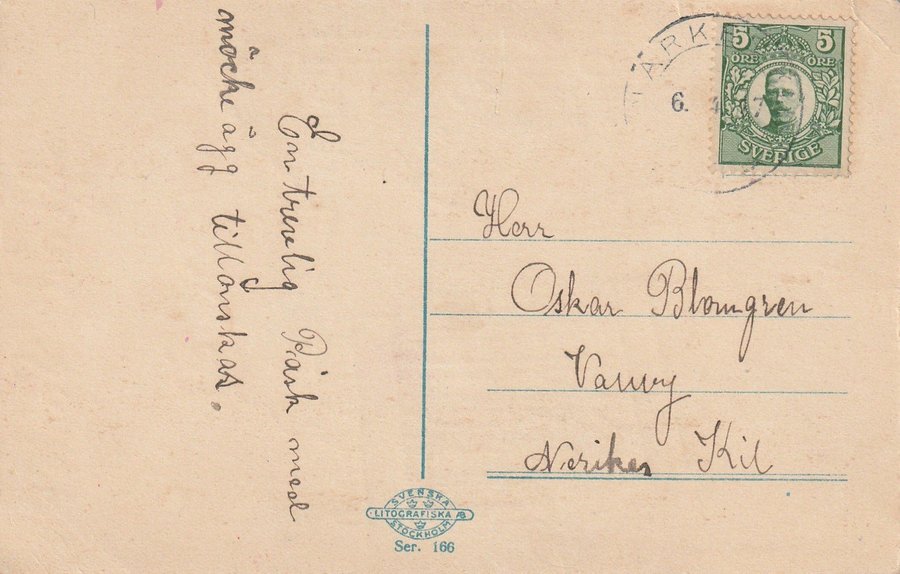 En trevlig Påsk med
möcke ägg tillönskas.
ÄRK
6. 4. 7
5 5
ÖRE ÖRE
SVERIGE
Herr
Oskar Blomgren
Nerikes Kil
SVENSKA
LITOGRAFISKA AB
STOCKHOLM
Ser. 166